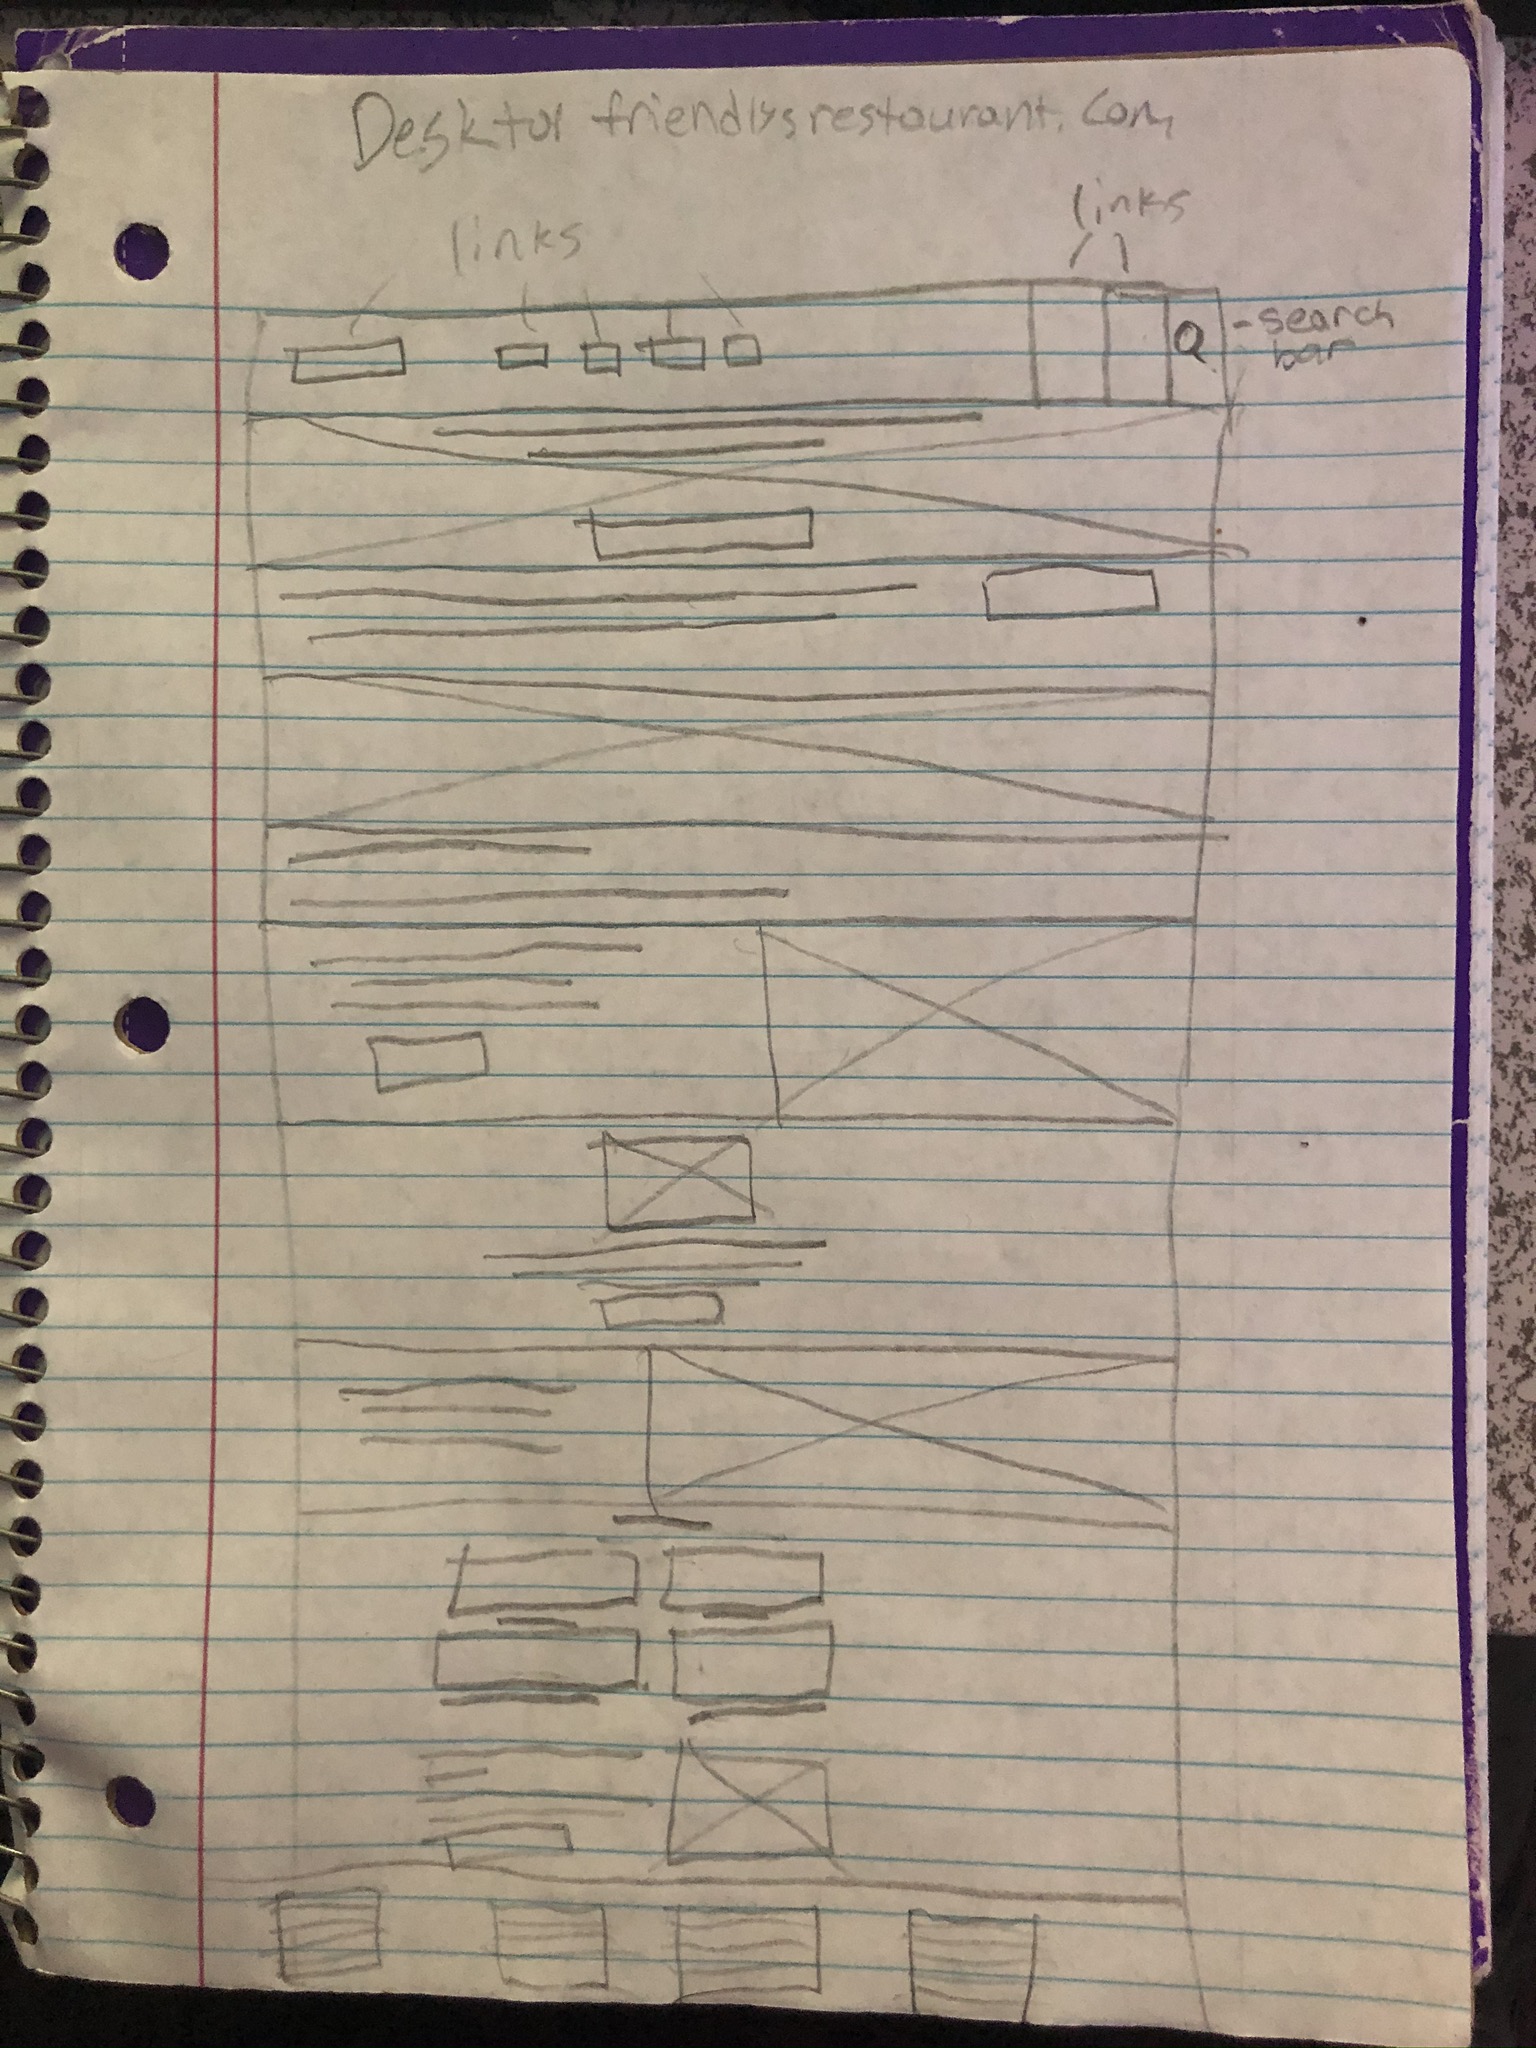 Desktop friendlysrestaurant.com
links
links
Q - search
bar